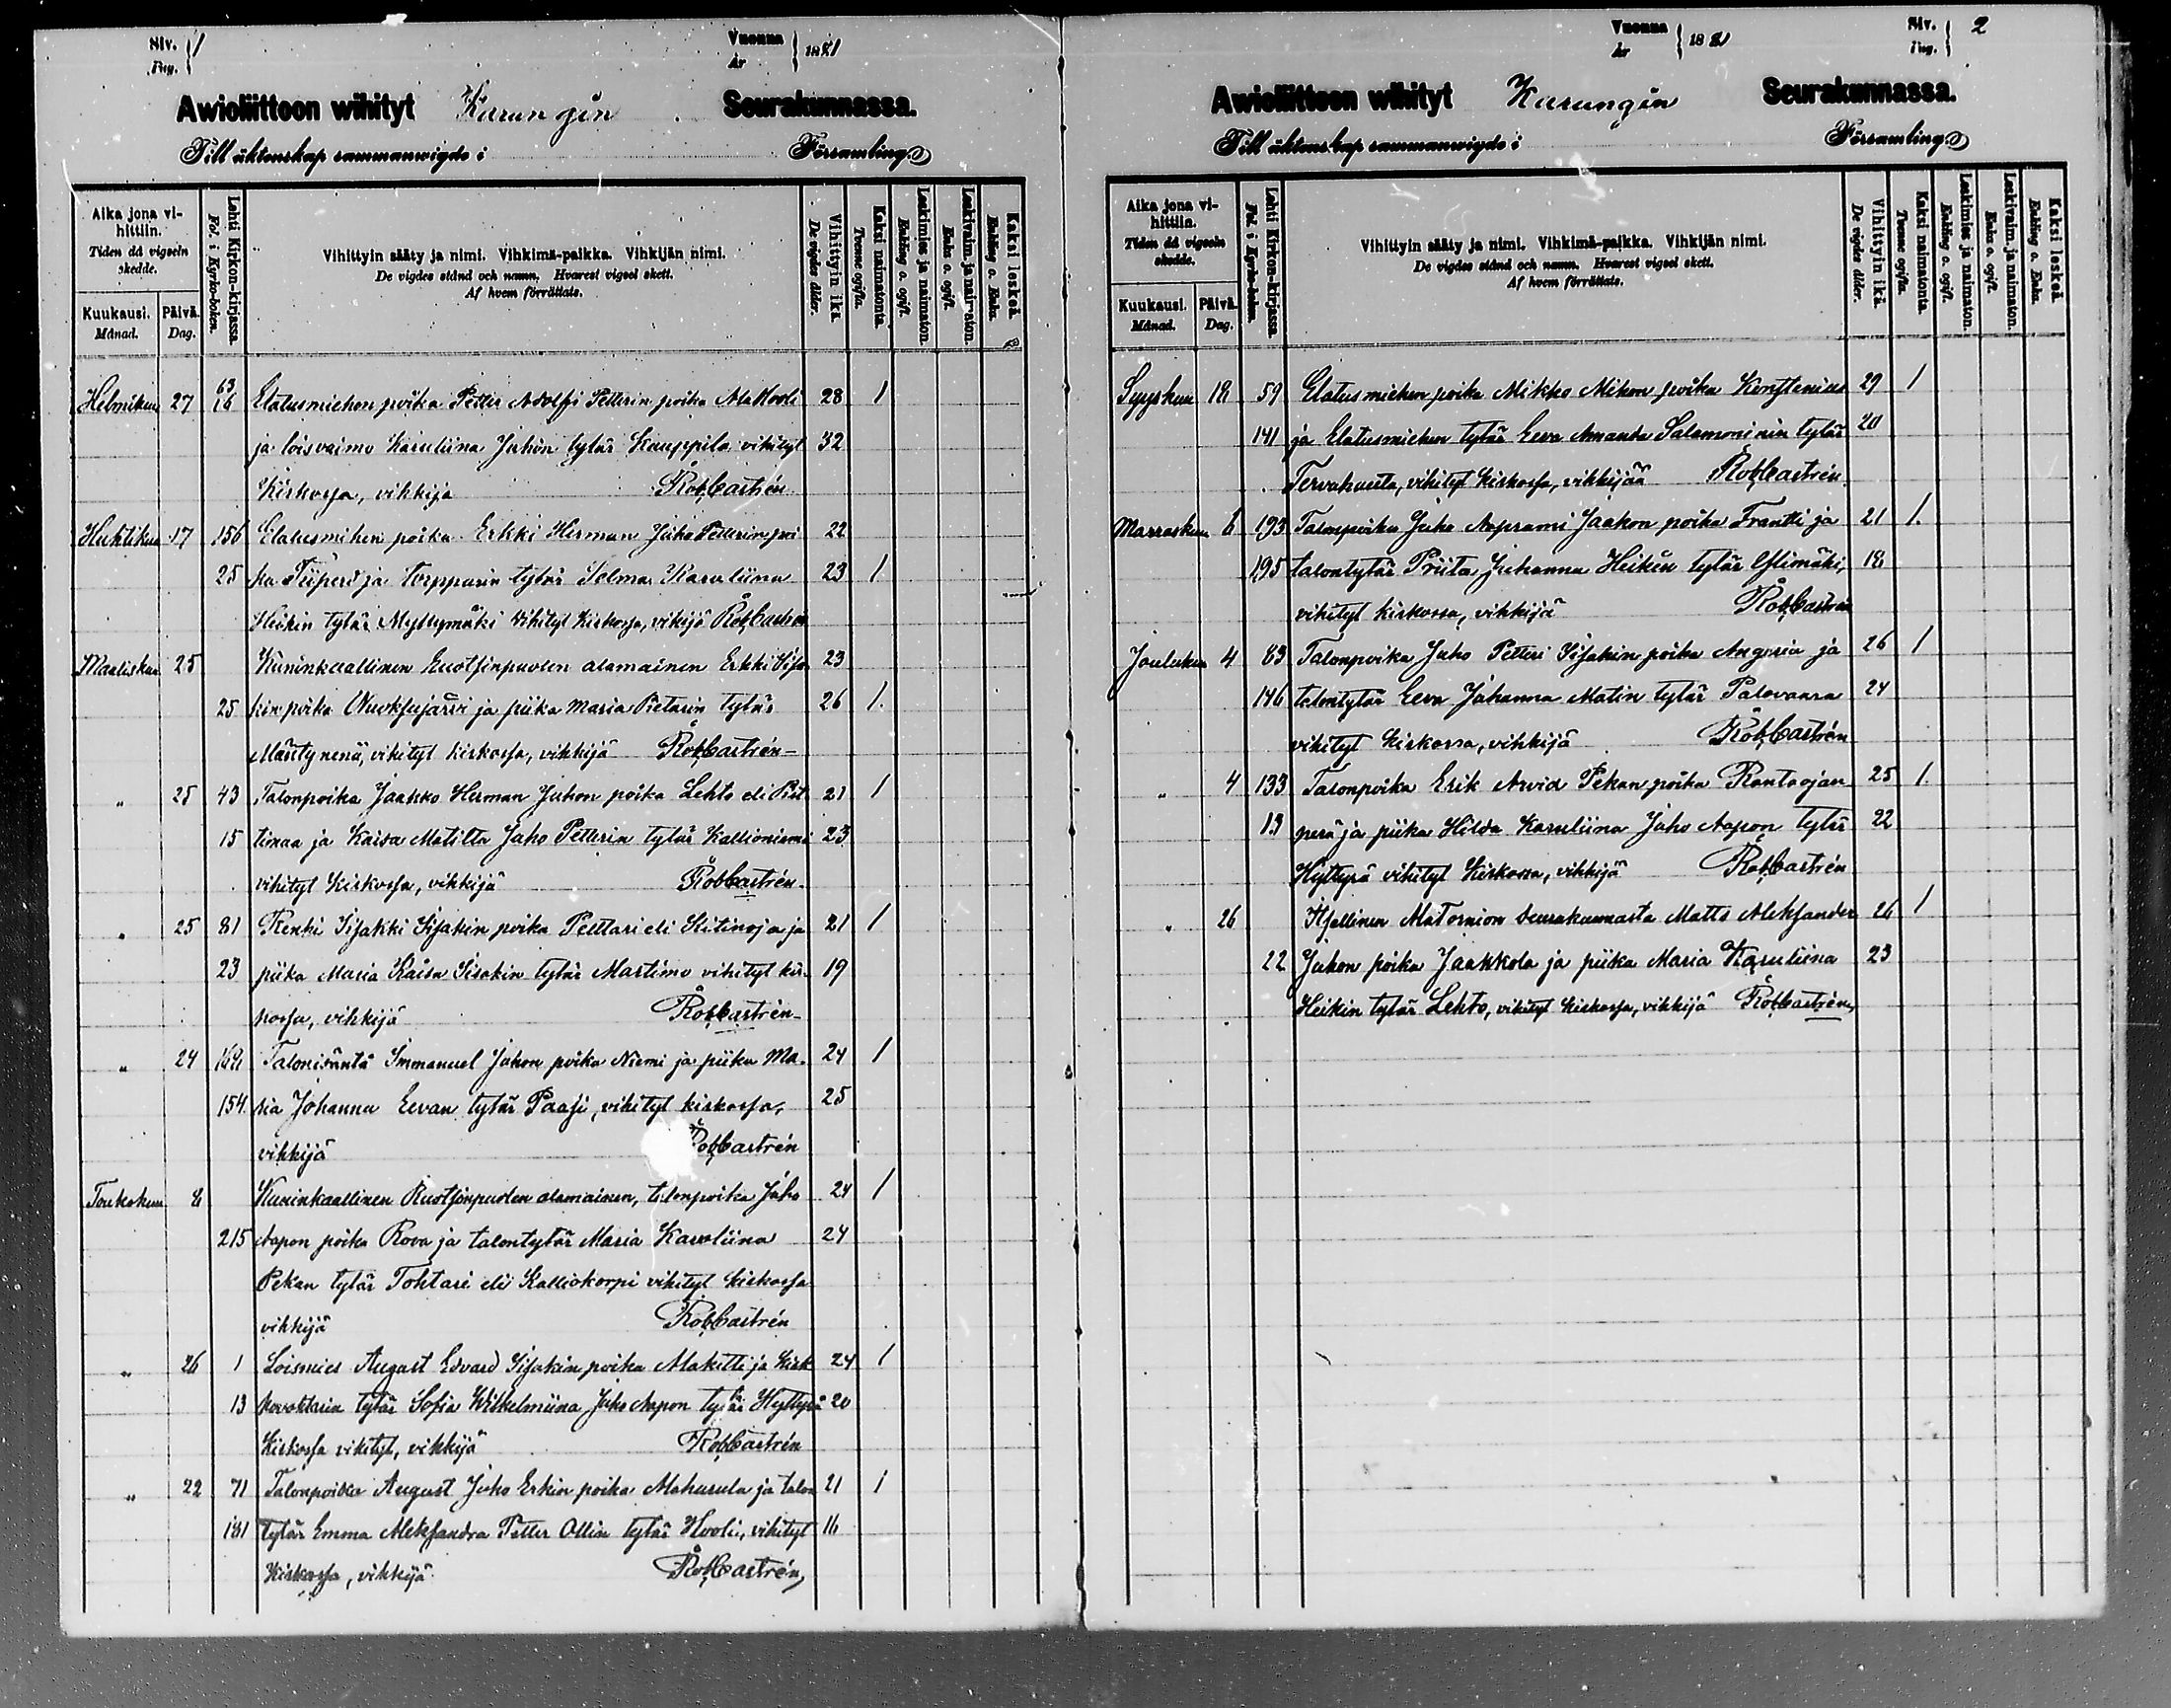 Siv. 1
Pag.
Vuonna 1881
År
Awioliittoon wihityt Karungin Seurakunnassa.
Till äktenskap sammanwigde i Församling
Aika jona vihittiin.
Tiden då vigseln skedde.
Kuukausi.
Månad.
Päivä.
Dag.
Lehti Kirkon-kirjassa.
Fol. i Kyrko-boken.
Vihittyin sääty ja nimi. Vihkimä-paikka. Vihkijän nimi.
De vigdes stånd och namn. Hvarest vigsel skett.
Af hvem förrättats.
Vihittyin ikä.
De vigdes ålder.
Kaksi naimatonta.
Tvenne ogifta.
Leskimies ja naimaton.
Enkling o. ogift.
Leskivaim. ja naimaton.
Enka o. ogift.
Kaksi leskeä.
Enkling o. Enka.
Helmikuu 27 63/16 Elatusmiehen poika Petter Adolfi Petterin poika Alakooli 28 1
ja loisvaimo Karuliina Juhon tytär Kauppila vihityt 32
Kirkossa, vihkijä Rob Castrén
Huhtikuu 17 156 Elatusmihen poika Erkki Herman Juho Petterin poi 22
25 ka Tiiperi ja torpparin tytär Selma Karuliina 23 1
Heikin tytär Myllymäki vihityt Kirkossa, vihijä Rob Castrén
Maaliskuu 25 Kuninkaallinen Ruotsinpuolen alamainen Erkki Iisa 23
25 kin poika Nuoksujärvi ja piika Maria Pietarin tytär 26 1.
Mäntynenä, vihityt kirkossa, vihkijä Rob Castrén
" 25 43 Talonpoika Jaakko Herman Juhon poika Lehto eli 21 1
15 ja Kaisa Matilta Juho Petterin tytär Kallioniemi 23
vihityt Kirkossa, vihkijä Rob Castrén
" 25 81 Renki Iisakki Iisakin poika Pelttari eli Kitinoja ja 21 1
23 piika Maria Kaisa Iisakin tytär Martimo vihityt kir- 19
kossa, vihkijä Rob Castrén
" 24 169 Talonisäntä Immanuel Juhon poika Niemi ja piika Ma- 24 1
154 ria Johanna Eevan tytär Paasi, vihityt kirkossa, 25
vihkijä Rob Castrén
Toukokuu 8 Kuninkaallinen Ruotsinpuolen alamainen, talonpoika Juho 24 1
215 Aapon poika Rova ja talontytär Maria Karoliina 24
Pekan tytär Tohtari eli Kalliokorpi vihityt kirkossa
vihkijä Rob Castrén
" 26 1 Loismies August Edvard Iisakin poika Alakitti ja Kirk 24 1
13 kovoktarin tytär Sofia Wilhelmiina Juho Aapon tytär Hyttyrä 20
Kirkossa vihityt, vihkijä Rob Castrén
" 22 71 Talonpoika August Juho Erkin poika Mahurula ja talon 21 1
181 tytär Emma Aleksandra Petter Ollin tytär Hooli, vihityt 16
Kirkossa, vihkijä Rob Castrén
Vuonna 1881
År
Siv. 2
Pag.
Awioliittoon wihityt Karungin Seurakunnassa.
Till äktenskap sammanwigde i Församling
Aika jona vihittiin.
Tiden då vigseln skedde.
Kuukausi.
Månad.
Päivä.
Dag.
Lehti Kirkon-kirjassa.
Fol. i Kyrko-boken.
Vihittyin sääty ja nimi. Vihkimä-paikka. Vihkijän nimi.
De vigdes stånd och namn. Hvarest vigsel skett.
Af hvem förrättats.
Vihittyin ikä.
De vigdes ålder.
Kaksi naimatonta.
Tvenne ogifta.
Leskimies ja naimaton.
Enkling o. ogift.
Leskivaim. ja naimaton.
Enka o. ogift.
Kaksi leskeä.
Enkling o. Enka.
Syyskuu 18 59 Elatusmiehen poika Mikko Mikon poika Konstenius 29 1
141 ja Elatusmiehen tytär Eeva Amanda Salamoninin tytär 20
Tervahauta, vihityt Kirkossa, vihkijää Rob Castrén
Marraskuu 6 193 Talonpoika Juho Aaprami Jaakon poika Frantti ja 21 1.
195 talontytär Priita Johanna Heikin tytär Ylimäki, 18
vihityt kirkossa, vihkijä Rob Castrén
Joulukuu 4 83 Talonpoika Juho Petteri Iisakin poika Angeria ja 26 1
146 talontytär Eeva Johanna Matin tytär Palovaara 24
vihityt Kirkossa, vihkijä Rob Castrén
" 4 133 Talonpoika Erik Arvid Pekan poika Rantaojan 25 1.
13 perä ja piika Hilda Karuliina Juho Aapon tytär 22
Hyttyrä vihityt Kirkossa, vihkijä Rob Castrén
" 26 Itsellinen AlaTornion Seurakunnasta Matts Aleksander 26 1
22 Juhon poika Jaakkola ja piika Maria Karuliina 23
Heikin tytär Lehto, vihityt kirkossa, vihkijä Rob Castrén